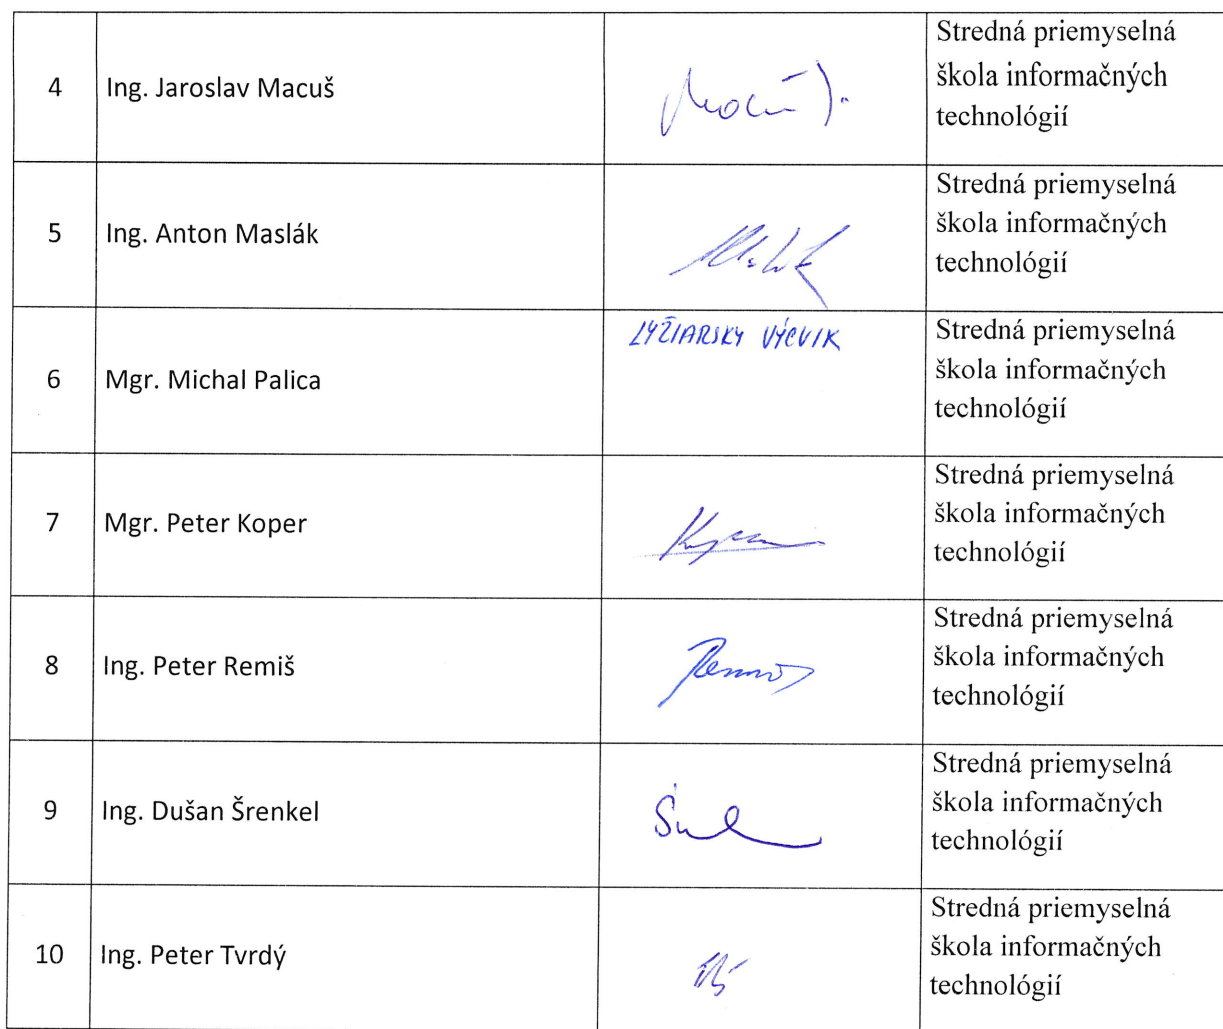 4 Ing. Jaroslav Macuš Stredná priemyselná
škola informačných
technológií
5 Ing. Anton Maslák Stredná priemyselná
škola informačných
technológií
6 Mgr. Michal Palica LYŽIARSKY VÝCVIK Stredná priemyselná
škola informačných
technológií
7 Mgr. Peter Koper Stredná priemyselná
škola informačných
technológií
8 Ing. Peter Remiš Stredná priemyselná
škola informačných
technológií
9 Ing. Dušan Šrenkel Stredná priemyselná
škola informačných
technológií
10 Ing. Peter Tvrdý Stredná priemyselná
škola informačných
technológií